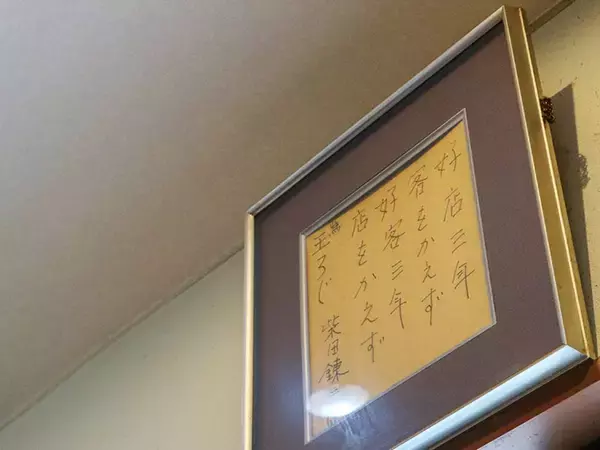 好店三年
客をかえず
好客三年
店をかえず
玉ろじ 柴田錬